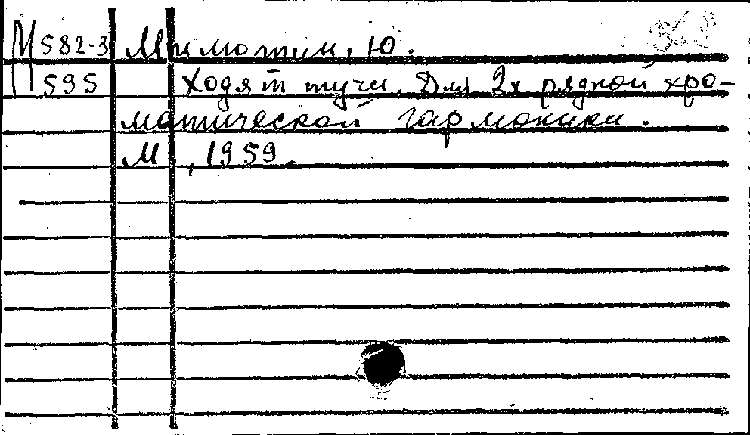 М 582-3 Милютин, Ю.
595 Ходят тучи. Для 2х рядной хро-
матической гармоники.
М., 1959.